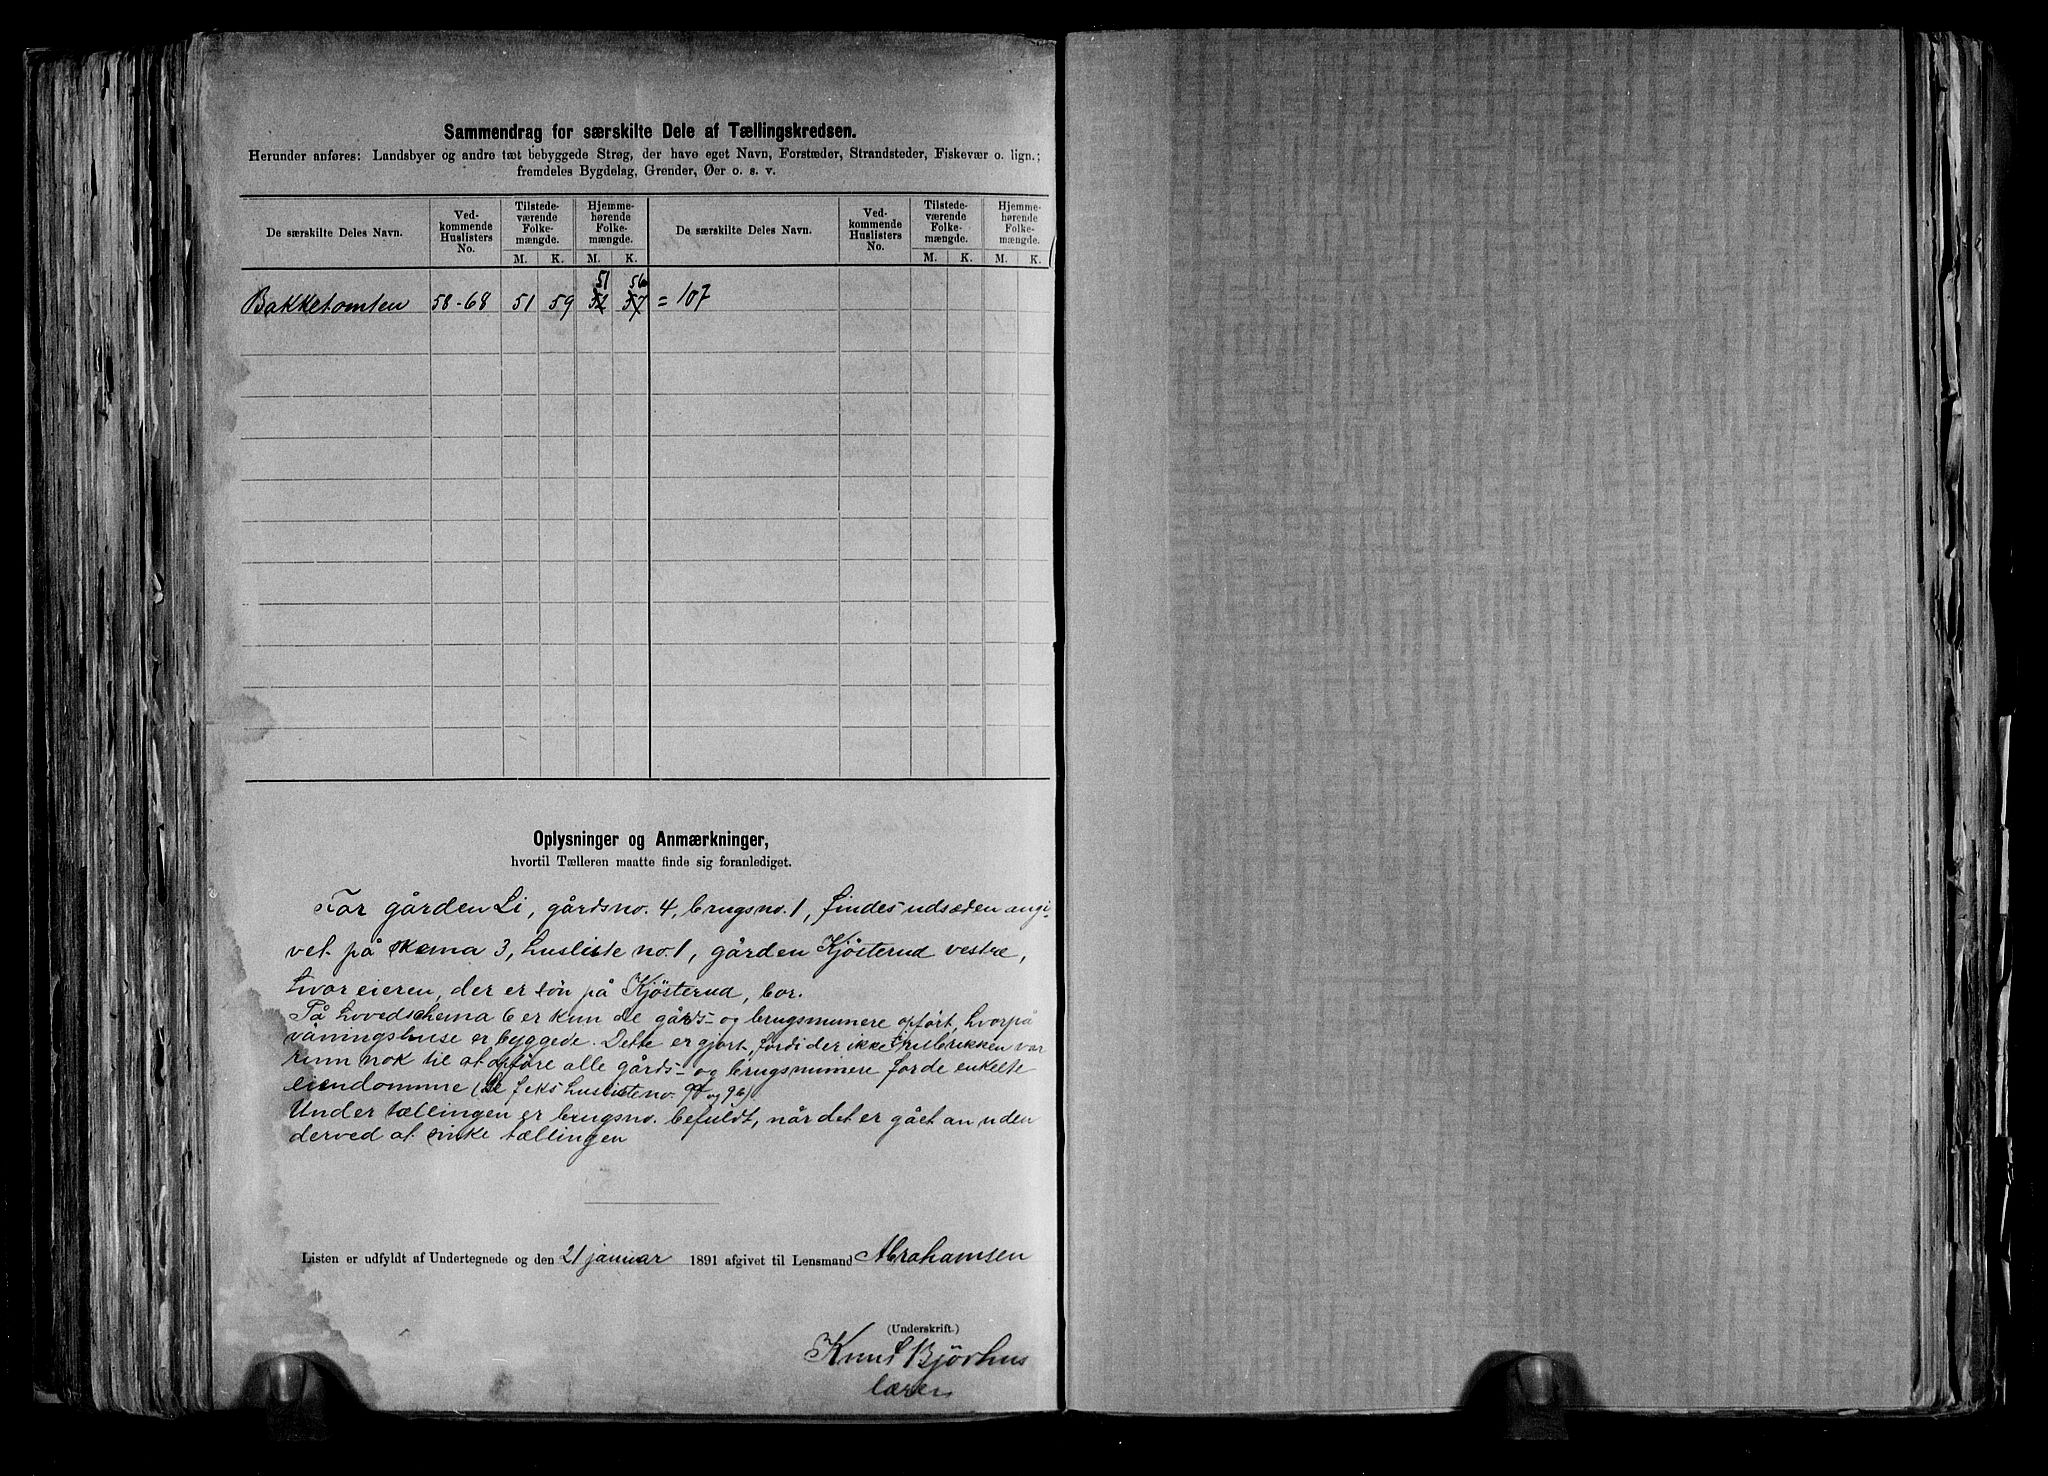 Sammendrag for særskilte Dele af Tællingskredsen.
Herunder anføres: Landsbyer og andre tæt bebyggede Strøg, der have eget Navn, Forstæder, Strandsteder, Fiskevær o. lign.;
fremdeles Bygdelag, Grender, Øer o. s. v.
De særskilte Deles Navn. Ved-kommende Huslisters No. Tilstede-værende Folke-mængde. Hjemme-hørende Folke-mængde. De særskilte Deles Navn. Ved-kommende Huslisters No. Tilstede-værende Folke-mængde. Hjemme-hørende Folke-mængde.
M. K. M. K. M. K. M. K.
51 56
Bakketomten 58-68 51 59 52 57 = 107
Oplysninger og Anmærkninger,
hvortil Tælleren maatte finde sig foranlediget.
For gården Li, gårdsno. 4, brugsno. 1, findes udsæden angi-
vet på skema 3, husliste no. 1, gården Kjösterud vestre,
hvor eieren, der er sön på Kjösterud, bor.
På hovedschema 6 er kun de gårds- og brugsnumere opfört, hvorpå
våningshuse er byggede. Dette er gjort, fordi der ikke i rubrikken var
rum nok til at opföre alle gårds- og brugsnumere for de enkelte
eiendomme (Se f.eks husliste no. 94 og 96)
Under tællingen er brugsno. befuldt, når det er gået an uden
derved at sinke tællingen
Listen er udfyldt af Undertegnede og den 21 januar 1891 afgivet til Lensmand Abrahamsen
(Underskrift.)
Knut Bjørhus
lærer